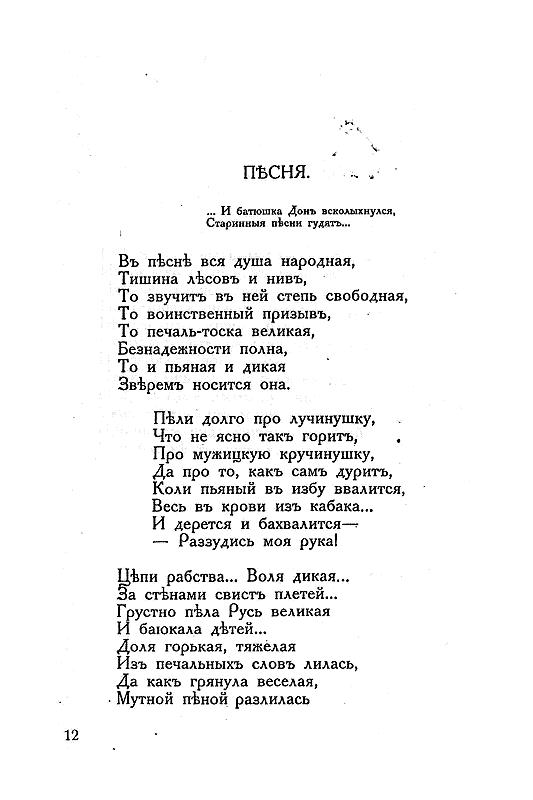 ПѢСНЯ.
... И батюшка Донъ всколыхнулся,
Старинныя пѣсни гудятъ...
Въ пѣснѣ вся душа народная,
Тишина лѣсовъ и нивъ,
То звучитъ въ ней степь свободная,
То воинственный призывъ,
То печаль-тоска великая,
Безнадежности полна,
То и пьяная и дикая
Звѣремъ носится она.
Пѣли долго про лучинушку,
Что не ясно такъ горитъ,
Про мужицкую кручинушку,
Да про то, какъ самъ дуритъ,
Коли пьяный въ избу ввалится,
Весь въ крови изъ кабака...
И дерется и бахвалится—
— Раззудись моя рука!
Цѣпи рабства... Воля дикая...
За стѣнами свистъ плетей...
Грустно пѣла Русь великая
И баюкала дѣтей...
Доля горькая, тяжелая
Изъ печальныхъ словъ лилась,
Да какъ грянула веселая,
Мутной пѣной разлилась
12